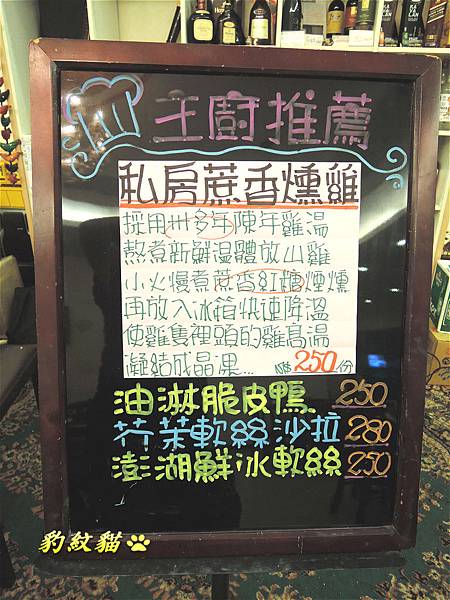 主廚推薦
私房蔗香燻雞
採用卅多年陳年雞湯
熬煮新鮮溫體放山雞
小火慢煮蔗香紅糖煙燻
再放入冰箱快速降溫
使雞隻裡頭的雞高湯
凝結成晶凍... NT$250份
油淋脆皮鴨 250
芥茉軟絲沙拉 280
澎湖鮮冰軟絲 250
豹紋貓